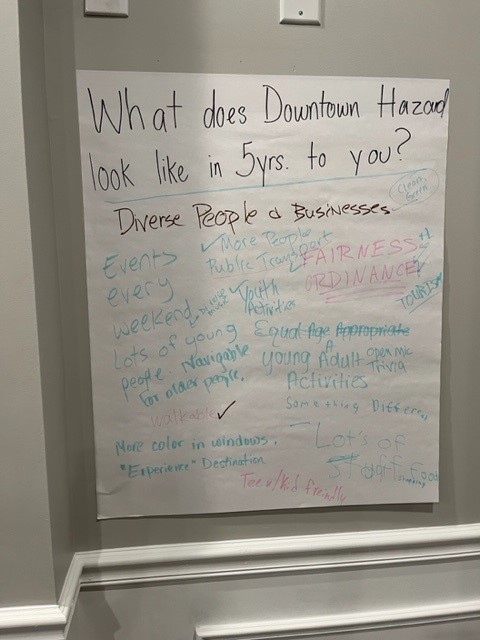 What does Downtown Hazard
look like in 5yrs. to you?
Clean,
Green
Diverse People & Businesses
More People
Public Transport
FAIRNESS +1
ORDINANCE
TOURISM
Events
every
weekend
Youth
Activities
Lots of young
people. Navigable
for older people.
Equal Age Appropriate
Young Adult
Activities
open mic
Trivia
Something Differ
walkable
More color in windows.
"Experience" Destination
Lot's of
Teen/Kid freindly